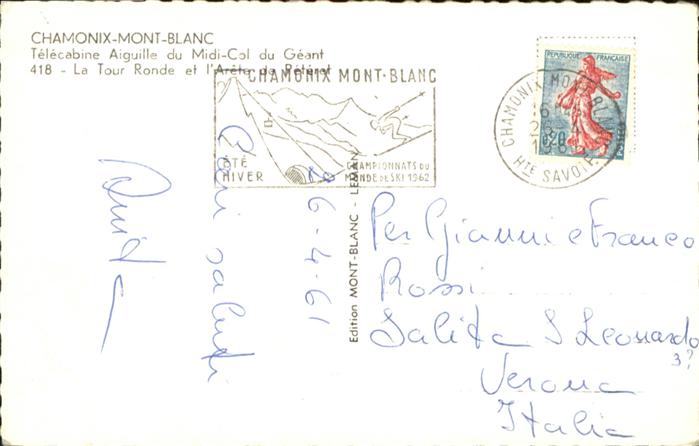 CHAMONIX-MONT-BLANC
Télécabine Aiguille du Midi-Col du Géant
418 - La Tour Ronde et l'Arête de Péteret
CHAMONIX MONT-BLANC
ÉTÉ
HIVER
CHAMPIONNATS DU
MONDE DE SKI 1962
REPUBLIQUE FRANÇAISE
POSTES
0,20
CHAMONIX MONT BLANC
HTE SAVOIE
Edition MONT-BLANC - LEMAN
26-4-61
Cari saluti
Per Gianni e Franco
Rossi
Salita S Leonardo
3?
Verona
Italia